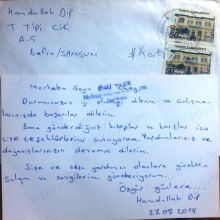 Hamdullah Dip
T Tipi CİK
A-5
Bafra/SAMSUN
Merhaba Sayın
Durumunuzun iyi olmasını dilerim ve çalışmalarınızda başarılar dilerim.
Bana gönderdiğiniz kitaplar ve kartlar için
size teşekkürlerimi sunuyorum. Yardımlarınızın ve
dayanışmanızın devamını dilerim.
Size ve size yardımcı olanlara yürekten
selam ve sevgilerimi gönderiyorum.
Özgür günlere...
Hamdullah Dip
27.08.2018